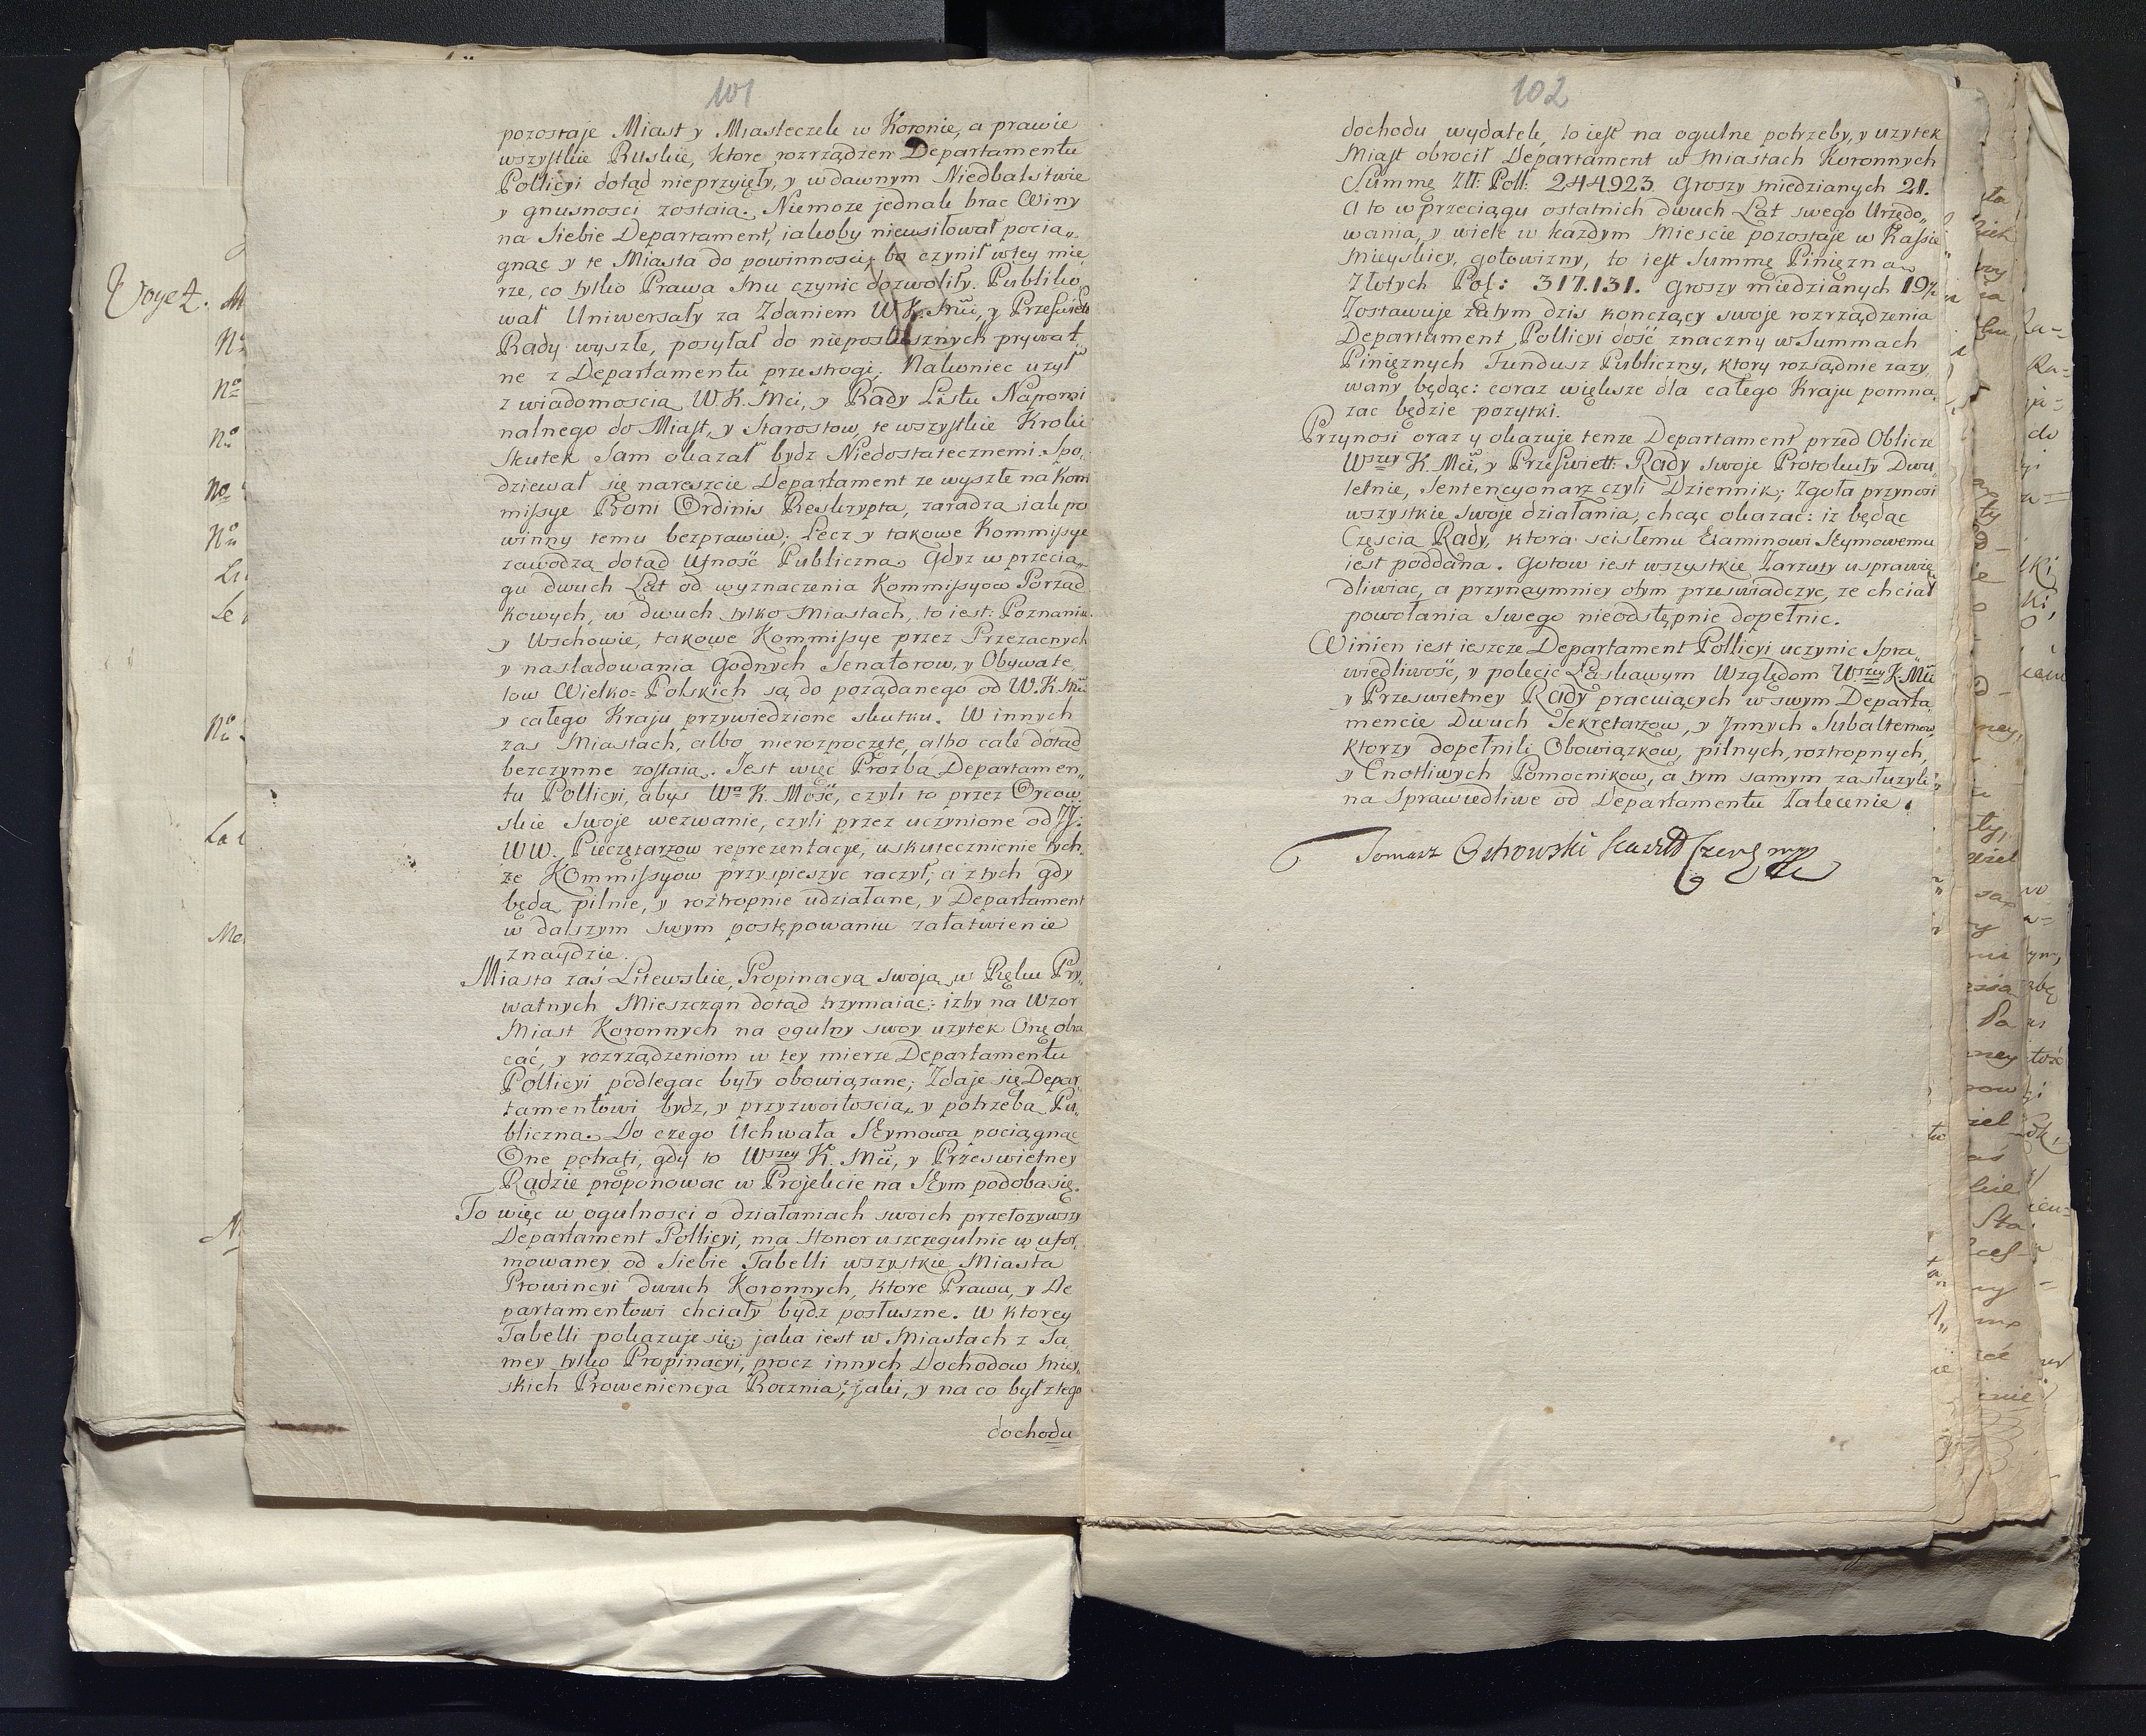 101
pozostaje Miast y Miasteczek w Koronie, a prawie
wszystkie Ruskie, ktore rozrządzen Departamentu
Pollicyi dotąd nieprzyięły, y w dawnym Niedbalstwie
y gnusnosci zostaią. Niemoze jednak brac Winy
na Siebie Departament, iakoby nieusiłował pocią„
gnąc y te Miasta do powinnosci, bo czynił w tey mie
rze, co tylko Prawa Mu czynic dozwoliły. Publiko„
wał Uniwersały za Zdaniem W K. Mci, y Przeswiet:
Rady wyszłe, posyłał do nieposłusznych prywat„
ne z Departamentu przestrogi; Nakoniec uzył
z wiadomoscią W. K. Mci, y Rady Listu Napomi
nalnego do Miast, y Starostow, te wszystkie Kroki
Skutek Sam okazał bydz Niedostatecznemi. Spo„
dziewał się nareszcie Departament ze wyszłe na Kom
missye Boni Ordinis Reskrypta, zaradzą iak po
winny temu bezprawiu; Lecz y takowe Kommissye
zawodzą dotąd Ufność Publiczną. Gdyz w przecią„
gu dwuch Lat od wyznaczenia Kommissyow Porząd
kowych, w dwuch tylko Miastach, to iest: Poznaniu
y Wschowie, takowe Kommissye przez Przezacnych
y nasladowania Godnych Senatorow, y Obywate„
low Wielko=Polskich są do poządanego od W. K. Mci
y całego Kraju przywiedzione skutku. W innych
zas Miastach, albo nierozpoczęte, albo cale dotąd
bezczynne zostaią. Jest więc Prozba Departamen„
tu Pollicyi, abys Wa K. Mość, czyli to przez Oycow
skie Swoje wezwanie, czyli przez uczynione od JJ:
WW. Pieczętarzow reprezentacye, uskutecznienie tych
że Kommissyow przyspieszyc raczył; a z tych gdy
będą pilnie, y roztropnie udziałane, y Departament
w dalszym swym postępowaniu załatwienie
znaydzie.
Miasta zaś Litewskie, Propinacyą swoją w Ręku Pry„
watnych Mieszczan dotąd trzymaiąc: izby na Wzor
Miast Koronnych na ogulny swoy uzytek Onę obra
cać, y rozrządzeniom w tey mierze Departamentu
Pollicyi podlegac były obowiązane; Zdaje się Depar„
tamentowi bydz, y przyzwoitoscią, y potrzebą Pu„
bliczną. Do czego Uchwała Seymowa pociągnąc
One potrafi, gdy to Wszey K. Mci, y Przeswietney
Radzie proponowac w Projekcie na Seym podoba się.
To więc w ogulnosci o działaniach swoich przełozywszy
Departament Pollicyi, ma Honor uszczegulnic w ufor„
mowaney od Siebie Tabelli wszystkie Miasta
Prowincyi dwuch Koronnych, ktore Prawu, y De
partamentowi chciały bydz posłuszne. W ktorey
Tabelli pokazuje się: jaka iest w Miastach z Sa„
mey tylko Propinacyi, procz innych Dochodow Miey„
skich Proweniencya Roczna; jaki, y na co był z tego
dochodu
102
dochodu wydatek, to iest na ogulne potrzeby, y uzytek
Miast obrocił Departament w Miastach Koronnych
Summę Złł: Poll: 244923 Groszy miedzianych 21.
A to w przeciągu ostatnich dwuch Lat swego Urzędo„
wania, y wiele w kazdym Miescie pozostaje w Kassie
Mieyskiey, gotowizny, to iest Summę Pinięzną
Złotych Pol: 317.131. Groszy miedzianych 19½
Zostawuje zatym dzis konczący swoje rozrządzenia
Departament Pollicyi dość znaczny w Summach
Pinięznych Fundusz Publiczny, ktory rozsądnie zazy„
wany będąc: coraz większe dla całego Kraju pomna„
zac będzie pozytki.
Przynosi oraz y okazuje tenze Departament przed Oblicze
Wszey K. Mci, y Przeswiett: Rady swoje Protokuły Dwu„
letnie, Sentencyonarz czyli Dziennik; Zgoła przynosi
wszystkie swoje działania, chcąc okazać: iz będąc
Częscią Rady, ktora scisłemu Examinowi Seymowemu
iest poddana. Gotow iest wszystkie Zarzuty usprawie
dliwiac, a przynaymniey otym przeswiadczyc, ze chciał
powołania Swego nieodstępnie dopełnic.
Winien iest ieszcze Departament Pollicyi uczynic Spra„
wiedliwość, y polecic Łaskawym Względom Wszey K. Mci
y Przeswietney Rady pracuiących w swym Departa„
mencie Dwuch Sekretarzow, y Innych Subalternow,
ktorzy dopełnili Obowiązkow, pilnych, roztropnych,
y Cnotliwych Pomocnikow, a tym samym zasłuzyli
na Sprawiedliwe od Departamentu Zalecenie.
Tomasz Ostrowski